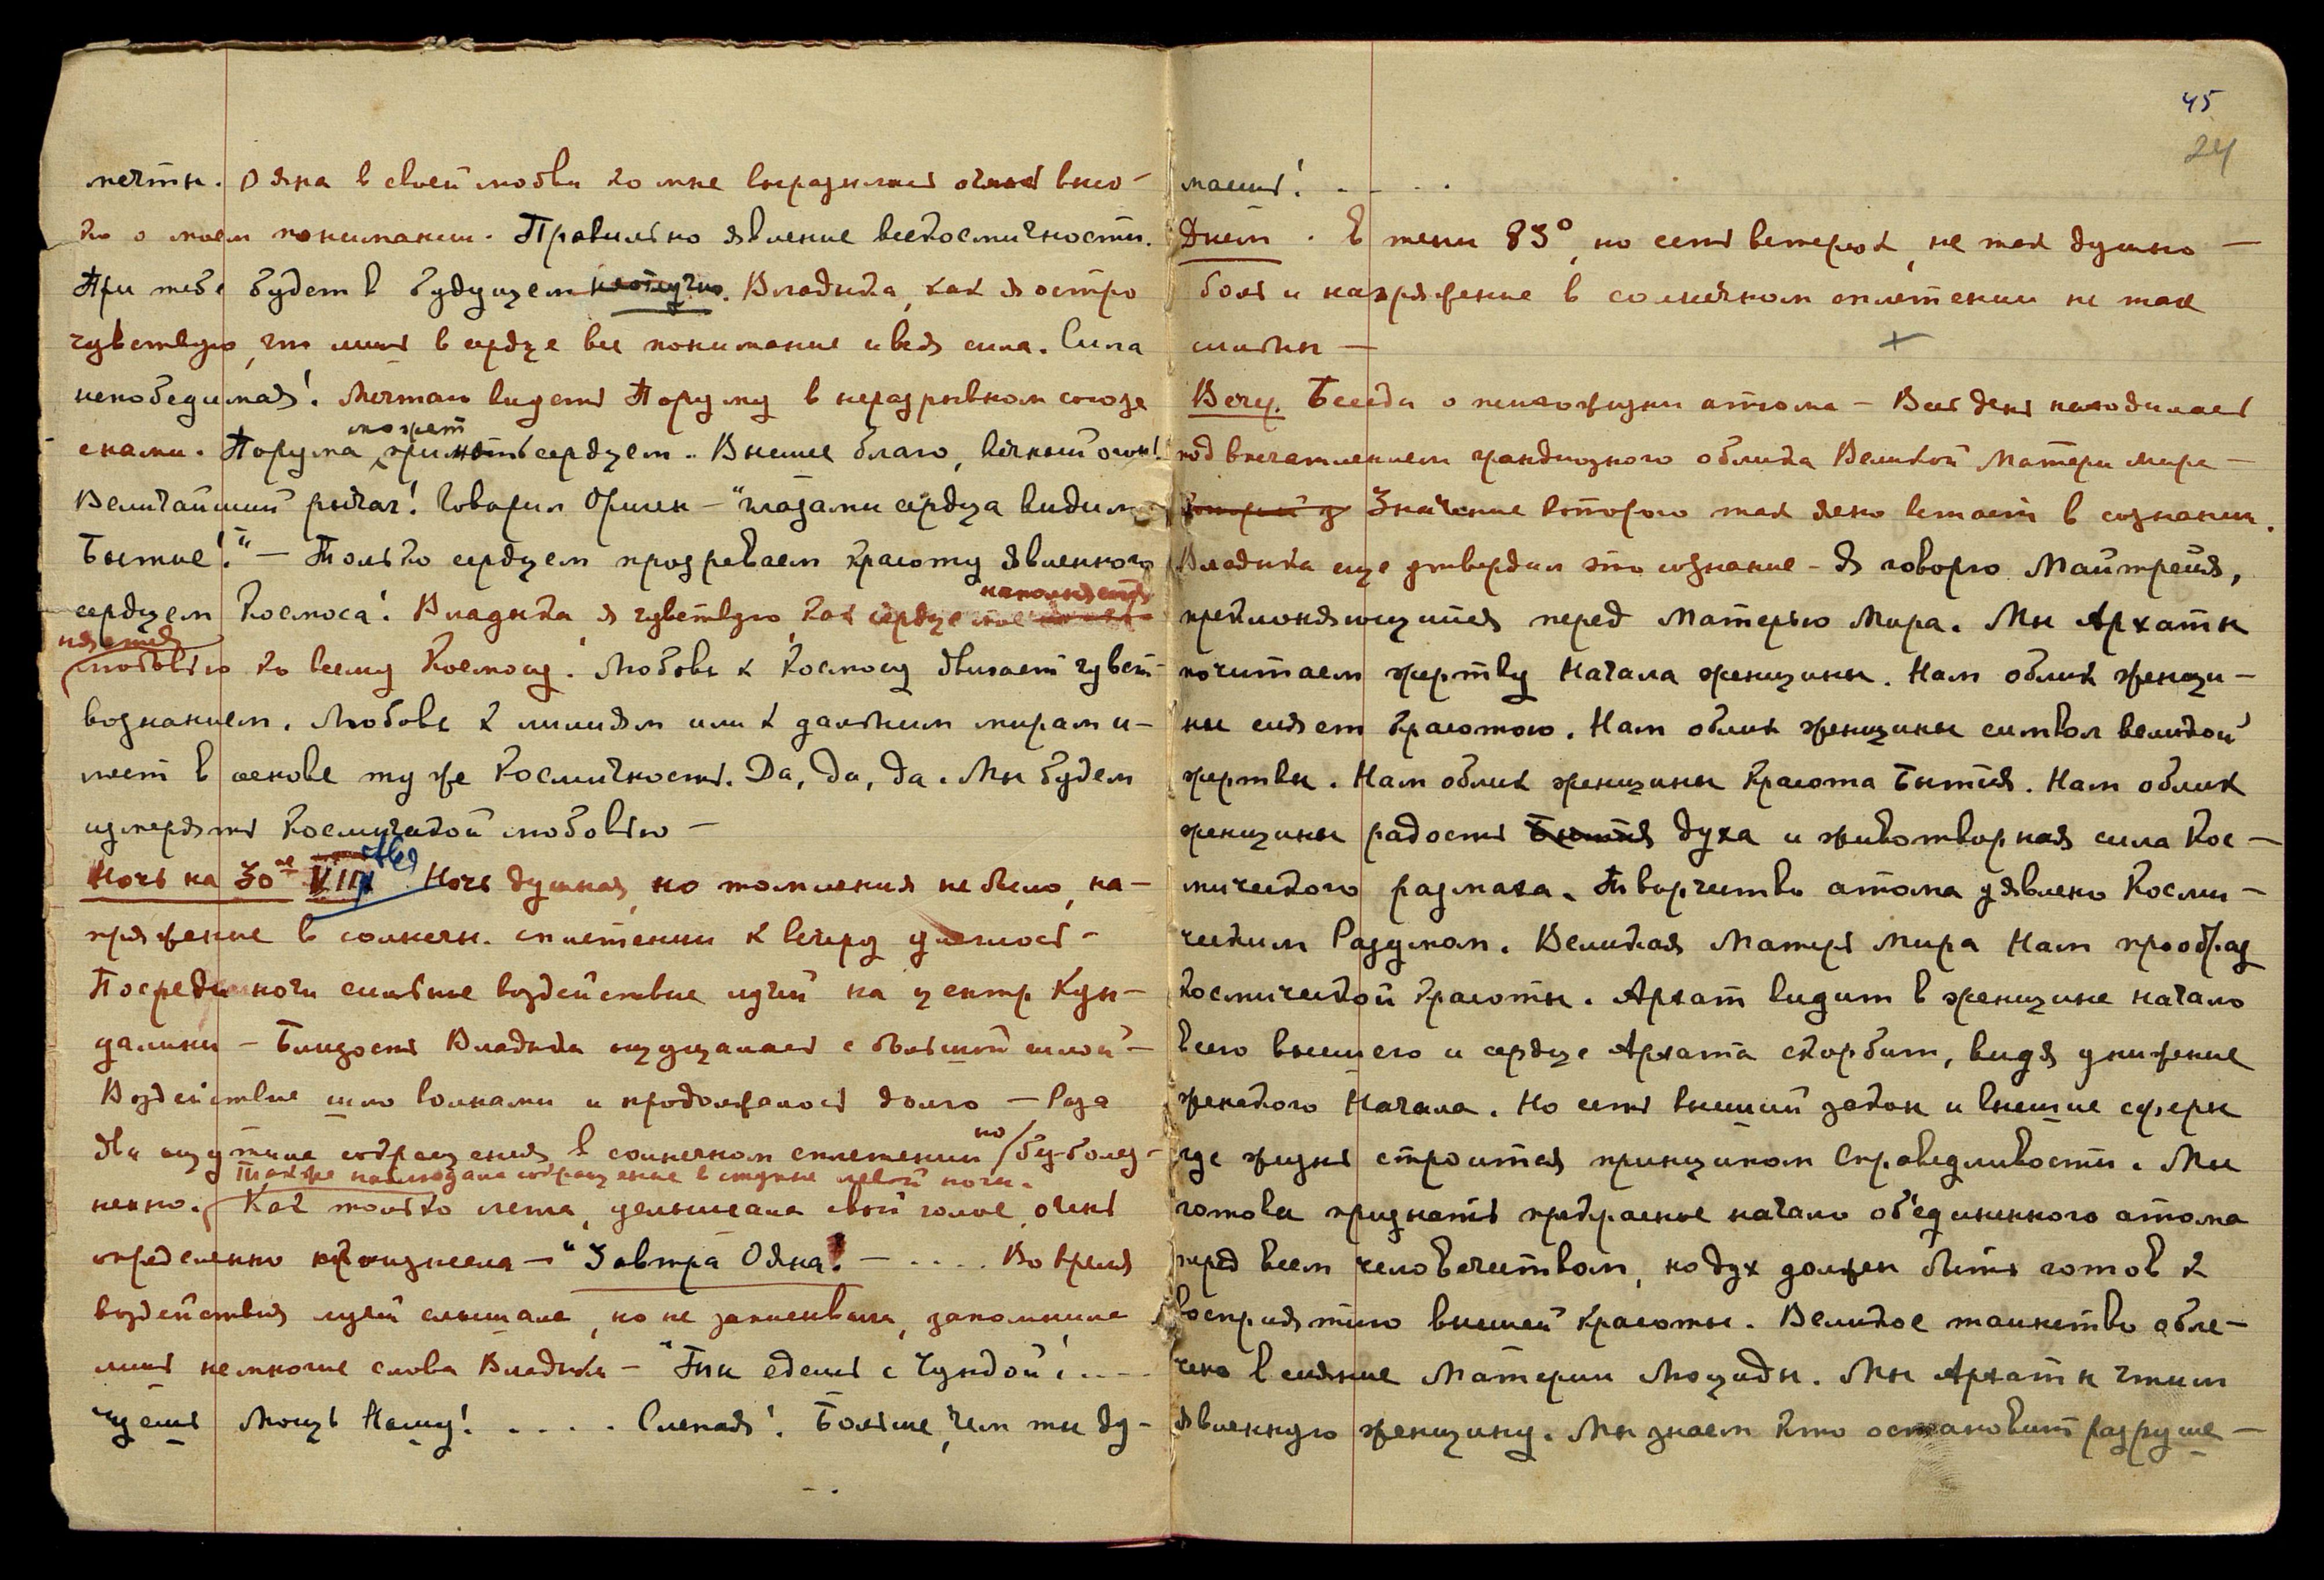 мечты. Ояна в своей любви ко мне выразилась очень высо-
ко о моем понимании. Правильно явление всекосмичности.
При тебе будет в будущем неотлучно. Владыка, как я остро
чувствую, что лишь в сердце все понимание и вся сила. Сила
непобедимая! Мечтаю видеть Поруму в неразрывном союзе
с нами. Порума может принять сердцем. Высшее благо, вечный огонь!
Величайший рычаг! Говорил Ориген – "глазами сердца видим
Бытие!" – Только сердцем прозреваем красоту явленного
сердцем Космоса! Владыка, я чувствую, как сердце мое наполняется
любовью ко всему Космосу! Любовь к Космосу движет чувст-
вознанием. Любовь к лилиям или к дальним мирам и-
меет в основе ту же Космичность. Да, да, да. Мы будем
измерять Космической любовью –
Ночь на 30ое VIII Ночь душная, но томления не было, на-
пряжение в солнечн. сплетении к вечеру улеглось –
Посреди ночи сильное воздействие лучей на центр Кун-
далини – Близость Владыки ощущалась с большой силой –
Воздействие шло волнами и продолжалось долго – Раза
два ощутила сокращения в солнечном сплетении, но безболез-
Также наблюдала сокращение в ступне левой ноги.
ненно. Как только легла, услышала свой голос, очень
определенно произнесла – "Завтра Ояна! – .... Во время
воздействия лучей слышала, но не записывала, запомнила
лишь немногие слова Владыки – "Ты едешь с Чундой! ....
Чуешь Мощь Нашу! ..... Слепая! Больше, чем ты ду-
45
24
маешь! ....
Днем. В тени 83°, но есть ветерок, не так душно –
боль и напряжение в солнечном сплетении не так
сильны –
Веч. Беседа о психожизни атома – Весь день находилась
под впечатлением грандиозного облика Великой Матери Мира –
Значение которого так ясно встает в сознании.
Владыка еще утвердил это сознание – Я говорю Майтрейя,
преклоняющийся перед Матерью Мира. Мы Архаты
почитаем жертву Начала женщины. Нам облик женщи-
ны сияет красотою. Нам облик женщины символ великой
жертвы. Нам облик женщины красота Бытия. Нам облик
женщины радость Бытия духа и животворная сила Кос-
мического размаха. Творчество атома уявлено Косми-
ческим Разумом. Великая Матерь Мира Нам прообраз
Космической красоты. Архат видит в женщине начало
всего высшего и сердце Архата скорбит, видя унижение
женского Начала. Но есть высший закон и высшие сферы
где жизнь строится принципом Справедливости. Мы
готовы признать прекрасное начало об'единенного атома
перед всем человечеством, но дух должен быть готов к
восприятию высшей красоты. Великое таинство обле-
чено в сияние Материи Люциды. Мы Архаты чтим
явленную женщину. Мы знаем кто остановит разруше-